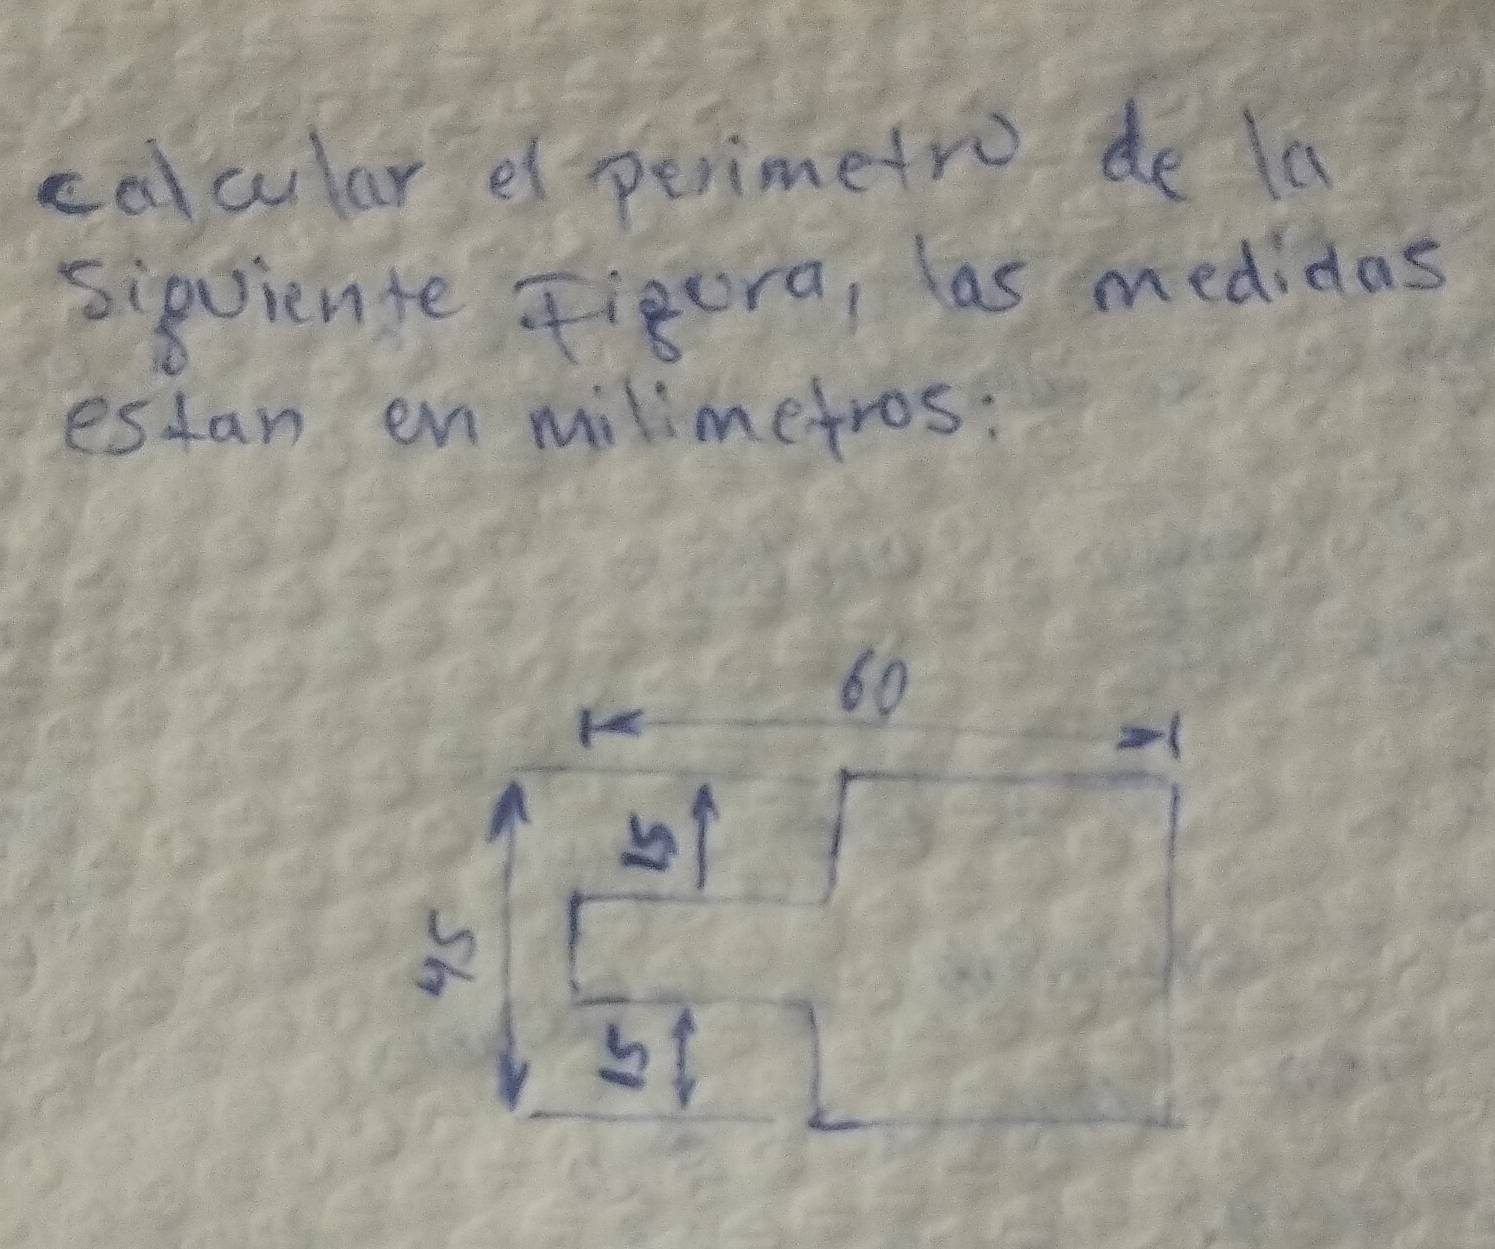 calcular el perimetro de la
siguiente Figura, las medidas
estan en milimetros:
60
15
45
15